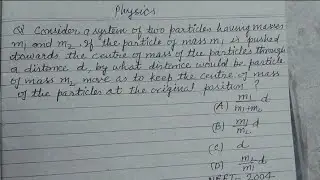 Physics
Q1 Consider a system of two particles having masses
m1 and m2. If the particle of mass m1 is pushed
towards the centre of mass of the particles through
a distance d, by what distance would be particle
of mass m2 move as to keep the centre of mass
of the particles at the original position ?
(A) m1/m1+m2 d
(B) m1/m2 d
(C) d
(D) m2/m1 d
NEET-2004